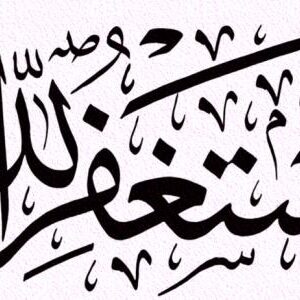 ستغفر الله